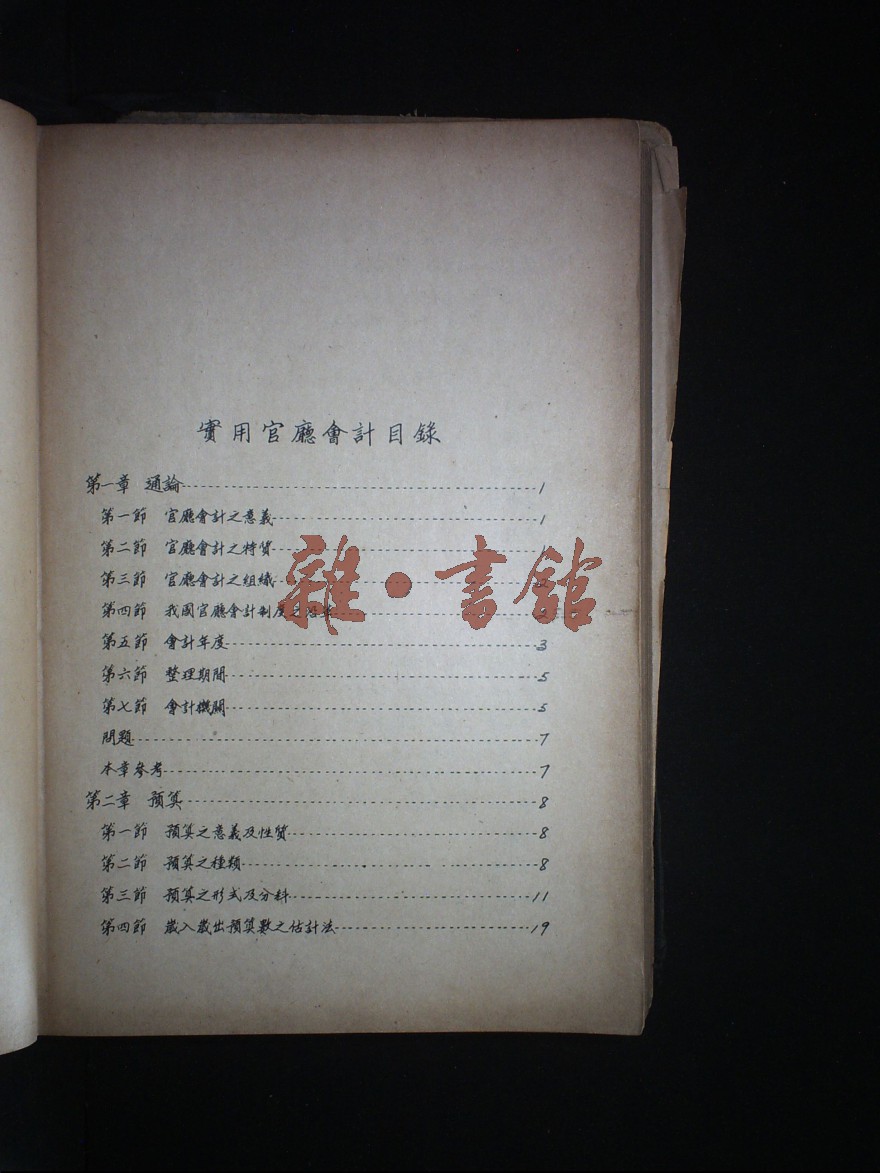 實用官廳會計目錄
第一章 通論 1
第一節 官廳會計之意義 1
第二節 官廳會計之特質
第三節 官廳會計之組織
第四節 我國官廳會計制度之沿革
第五節 會計年度 3
第六節 整理期間 5
第七節 會計機關 5
問題 7
本章參考 7
第二章 預算 8
第一節 預算之意義及性質 8
第二節 預算之種類 8
第三節 預算之形式及分科 11
第四節 歲入歲出預算數之估計法 19
雜·書館